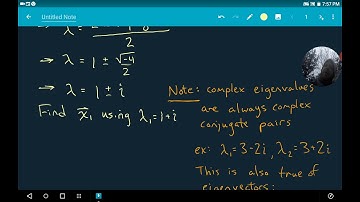 Untitled Note
7:57 PM
2
→ λ = 1 ± √-4
2
→ λ = 1 ± i
Find x⃗₁ using λ₁=1+i
Note: complex eigenvalues
are always complex
conjugate pairs
ex: λ₁=3-2i, λ₂=3+2i
This is also true of
eigenvectors: